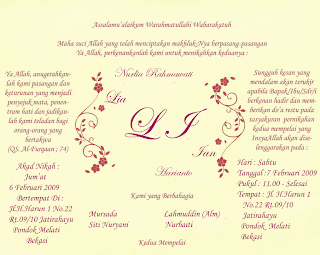 Assalamu'alaikum Warahmatullahi Wabarakatuh
Maha suci Allah yang telah menciptakan makhlukNya berpasang-pasangan
Ya Allah, perkenankanlah kami untuk menikahkan keduanya :
Ya Allah, anugerahkan-
lah kami pasangan dan
keturunan yang menjadi
penyejuk mata, penen-
tram hati dan jadikan-
lah kami teladan bagi
orang-orang yang
bertakwa
(QS. Al-Furqaan ; 74)
Nurlia Rahmawati
Lia
L I
Ian
Harianto
Sungguh kesan yang
mendalam akan terukir
apabila Bapak/Ibu/Sdr/i
berkenan hadir dan mem-
berikan do'a restu pada
tasyakuran pernikahan
kedua mempelai yang
InsyaAllah akan dise-
lenggarakan pada :
Akad Nikah :
Jum'at
6 Februari 2009
Bertempat Di :
Jl.H.Harun 1 No.22
Rt.09/10 Jatirahayu
Pondok Melati
Bekasi
Hari : Sabtu
Tanggal : 7 Februari 2009
Pukul : 11.00 - Selesai
Tempat : Jl. H.Harun 1
No.22 Rt.09/10
Jatirahayu
Pondok Melati
Bekasi
Kami yang Berbahagia
Mursada
Siti Nuryani
Lahmuddin (Alm)
Nurbaiti
Kedua Mempelai